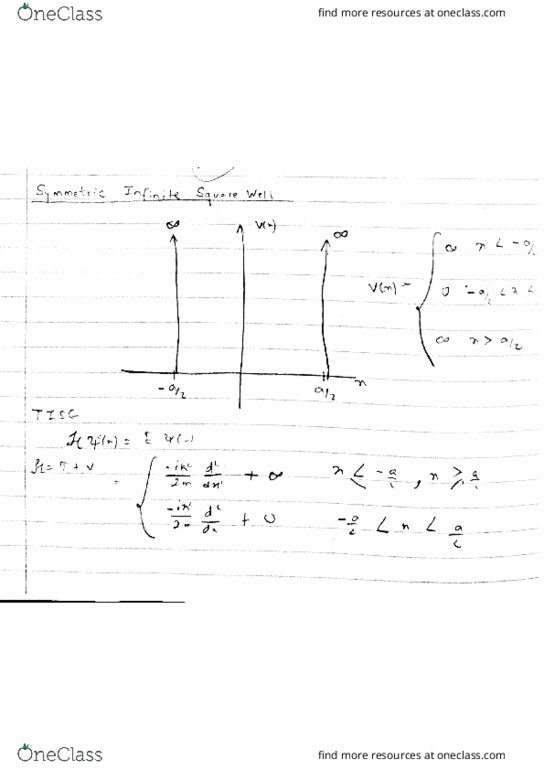 OneClass find more resources at oneclass.com
Symmetric Infinite Square Well
∞ V(x) ∞
V(x) =
∞ x < -a/
0 -a/2 < x <
∞ x > a/2
-a/2 a/2 x
TISE
H ψ(x) = E ψ(
H = T + V = d² + ∞ x < -a , x > a
2m dx²
d² + 0 -a < x < a
2m dx
OneClass find more resources at oneclass.com